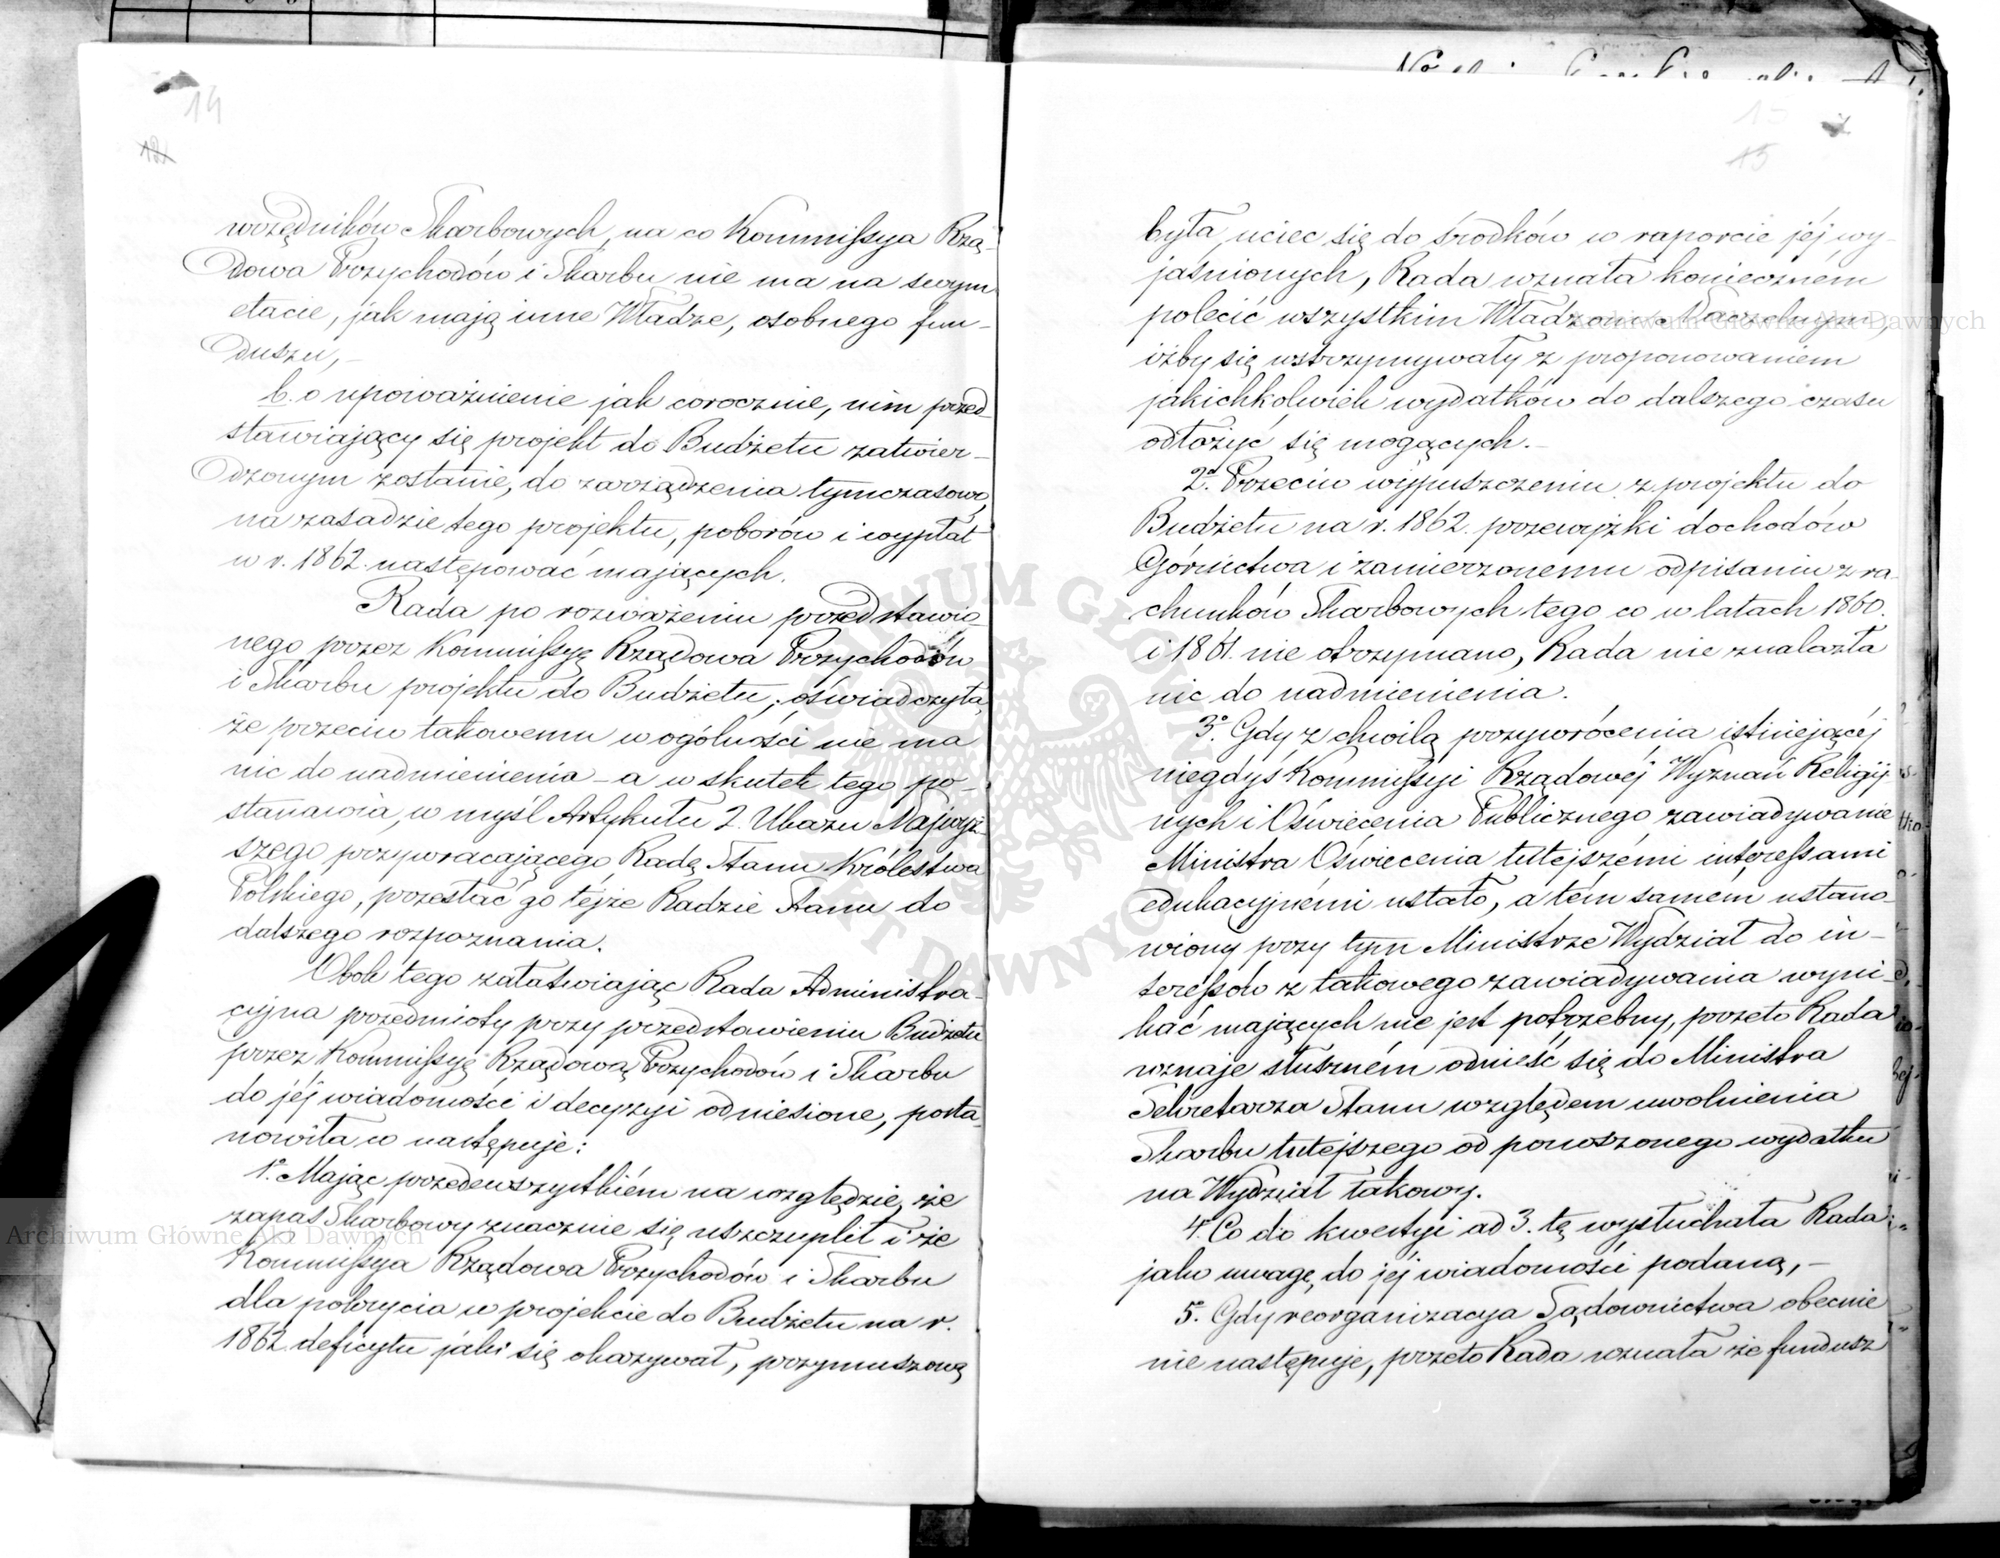 14
urzędników Skarbowych, na co Kommissya Rzą-
dowa Przychodów i Skarbu nie ma na swym
etacie, jak mają inne Władze, osobnego fun-
duszu,-
b. o upoważnienie jak corocznie, nim przed
stawiający się projekt do Budżetu zatwier-
dzonym zostanie, do zarządzenia tymczasowo,
na zasadzie tego projektu, poborów i wypłat
w r. 1862. następować mających.
Rada po rozważeniu przedstawio-
nego przez Kommissyę Rządową Przychodów
i Skarbu projektu do Budżetu, oświadczyła,
że przeciw takowemu w ogólności nie ma
nic do nadmienienia - a w skutek tego po-
stanawia, w myśl Artykułu 2. Ukazu Najwyż-
szego przywracającego Radę Stanu Królestwa
Polskiego, przesłać go tejże Radzie Stanu do
dalszego rozpoznania.
Obok tego załatwiając Rada Administra-
cyjna przedmioty przy przedstawieniu Budżetu
przez Kommissyę Rządową Przychodów i Skarbu
do jéj wiadomości i decyzyi odniesione, posta
nowiła co następuje:
1º. Mając przedewszystkiém na względzie, że
zapas Skarbowy znacznie się uszczuplił i że
Kommissya Rządowa Przychodów i Skarbu
dla pokrycia w projekcie do Budżetu na r.
1862. deficytu jaki się okazywał, przymuszoną
15
15
była uciec się do środków w raporcie jéj wy-
jaśnionych, Rada uznała koniecznem
polecić wszystkim Władzom Naczelnym,
iżby się wstrzymywały z proponowaniem
jakichkolwiek wydatków do dalszego czasu
odłożyć się mogących.-
2º. Przeciw wypuszczeniu z projektu do
Budżetu na r. 1862. przewyżki dochodów
Górnictwa i zamierzonemu odpisaniu z ra-
chunków Skarbowych tego co w latach 1860.
i 1861. nie otrzymano, Rada nie znalazła
nic do nadmienienia.
3º. Gdy z chwilą przywrócenia istniejącéj
niegdyś Kommissyi Rządowéj Wyznań Religij-
nych i Oświecenia Publicznego zawiadywanie
Ministra Oświecenia tutejszémi interessami
edukacyjnémi ustało, a tém samém ustano-
wiony przy tym Ministrze Wydział do in-
teressów z takowego zawiadywania wyni-
kać mających nie jest potrzebny, przeto Rada
uznaje słuszném odnieść się do Ministra
Sekretarza Stanu względem uwolnienia
Skarbu tutejszego od ponoszonego wydatku
na Wydział takowy.
4. Co do kwestyi ad 3. tę wysłuchała Rada
jako uwagę do jéj wiadomości podaną,-
5. Gdy reorganizacya Sądownictwa obecnie
nie następuje, przeto Rada uznała że fundusz
Archiwum Główne Akt Dawnych
Archiwum Główne Akt Dawnych
ARCHIWUM GŁÓWNE AKT DAWNYCH